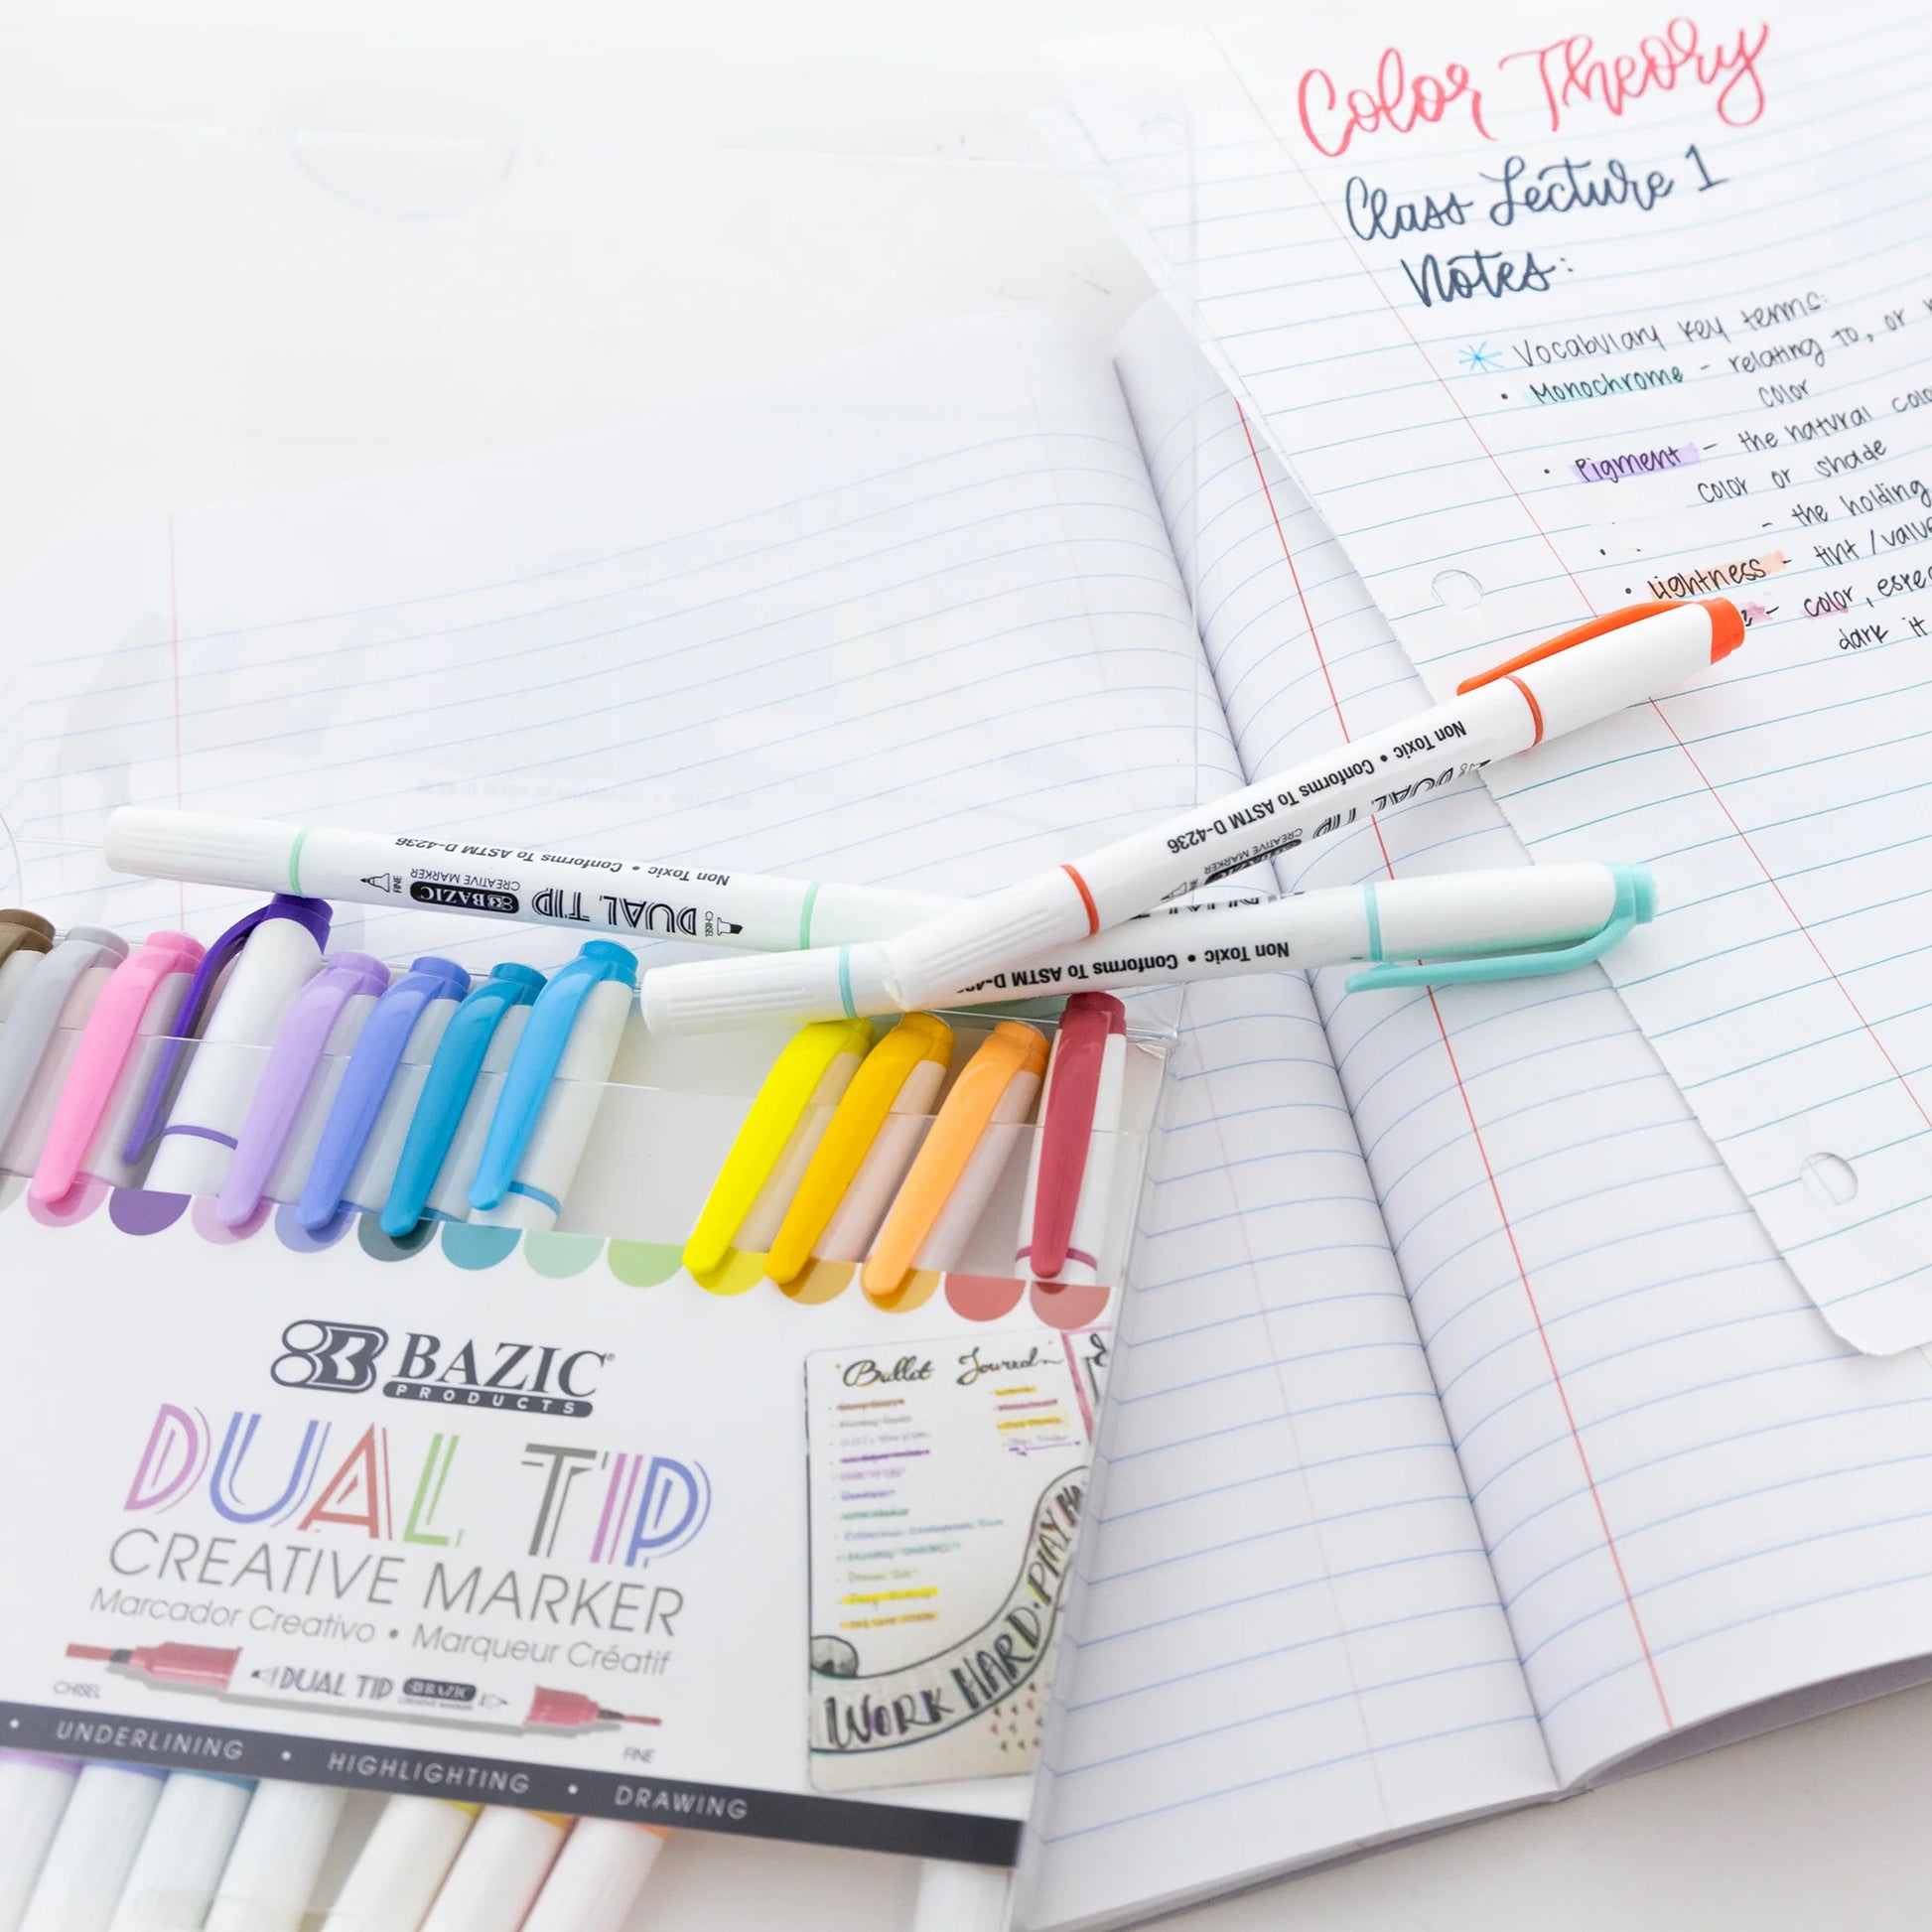 Color Theory
Class Lecture 1
Notes:
Vocabulary key terms:
• Monochrome - relating to, or
color
• Pigment - the natural
color or shade
• - the holding
• Lightness - tint / value
- color,
dark it
Non Toxic • Conforms To ASTM D-4236
DUAL TIP
CREATIVE MARKER
Non Toxic • Conforms To ASTM D-4236
CHISEL DUAL TIP BAZIC CREATIVE MARKER FINE
Non Toxic • Conforms To ASTM
BAZIC®
PRODUCTS
DUAL TIP
CREATIVE MARKER
Marcador Creativo • Marqueur Créatif
DUAL TIP BAZIC
CHISEL
FINE
• UNDERLINING • HIGHLIGHTING • DRAWING
Bullet Journal
WORK HARD · PLAY